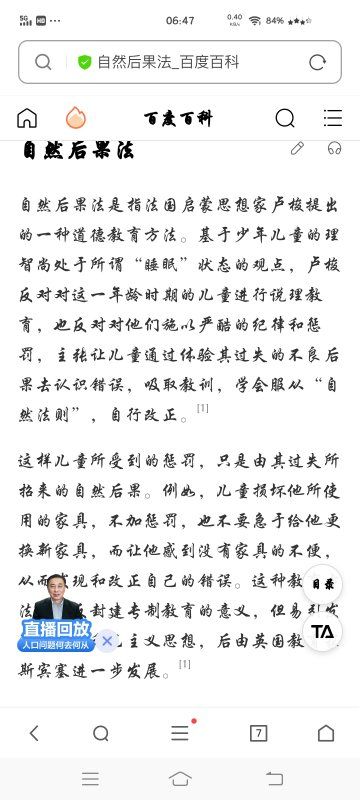 5G HD ... 06:47 0.40 KB/s 84%
自然后果法_百度百科
百度百科
自然后果法
自然后果法是指法国启蒙思想家卢梭提出
的一种道德教育方法。基于少年儿童的理
智尚处于所谓“睡眠”状态的观点，卢梭
反对对这一年龄时期的儿童进行说理教
育，也反对对他们施以严酷的纪律和惩
罚，主张让儿童通过体验其过失的不良后
果去认识错误，吸取教训，学会服从“自
然法则”，自行改正。[1]
这样儿童所受到的惩罚，只是由其过失所
招来的自然后果。例如，儿童损坏他所使
用的家具，不加惩罚，也不要急于给他更
换新家具，而让他感到没有家具的不便，
从而发现和改正自己的错误。这种教
法 反封建专制教育的意义，但易引发
主义思想，后由英国教
斯宾塞进一步发展。[1]
目录
TA
直播回放
人口问题何去何从
7